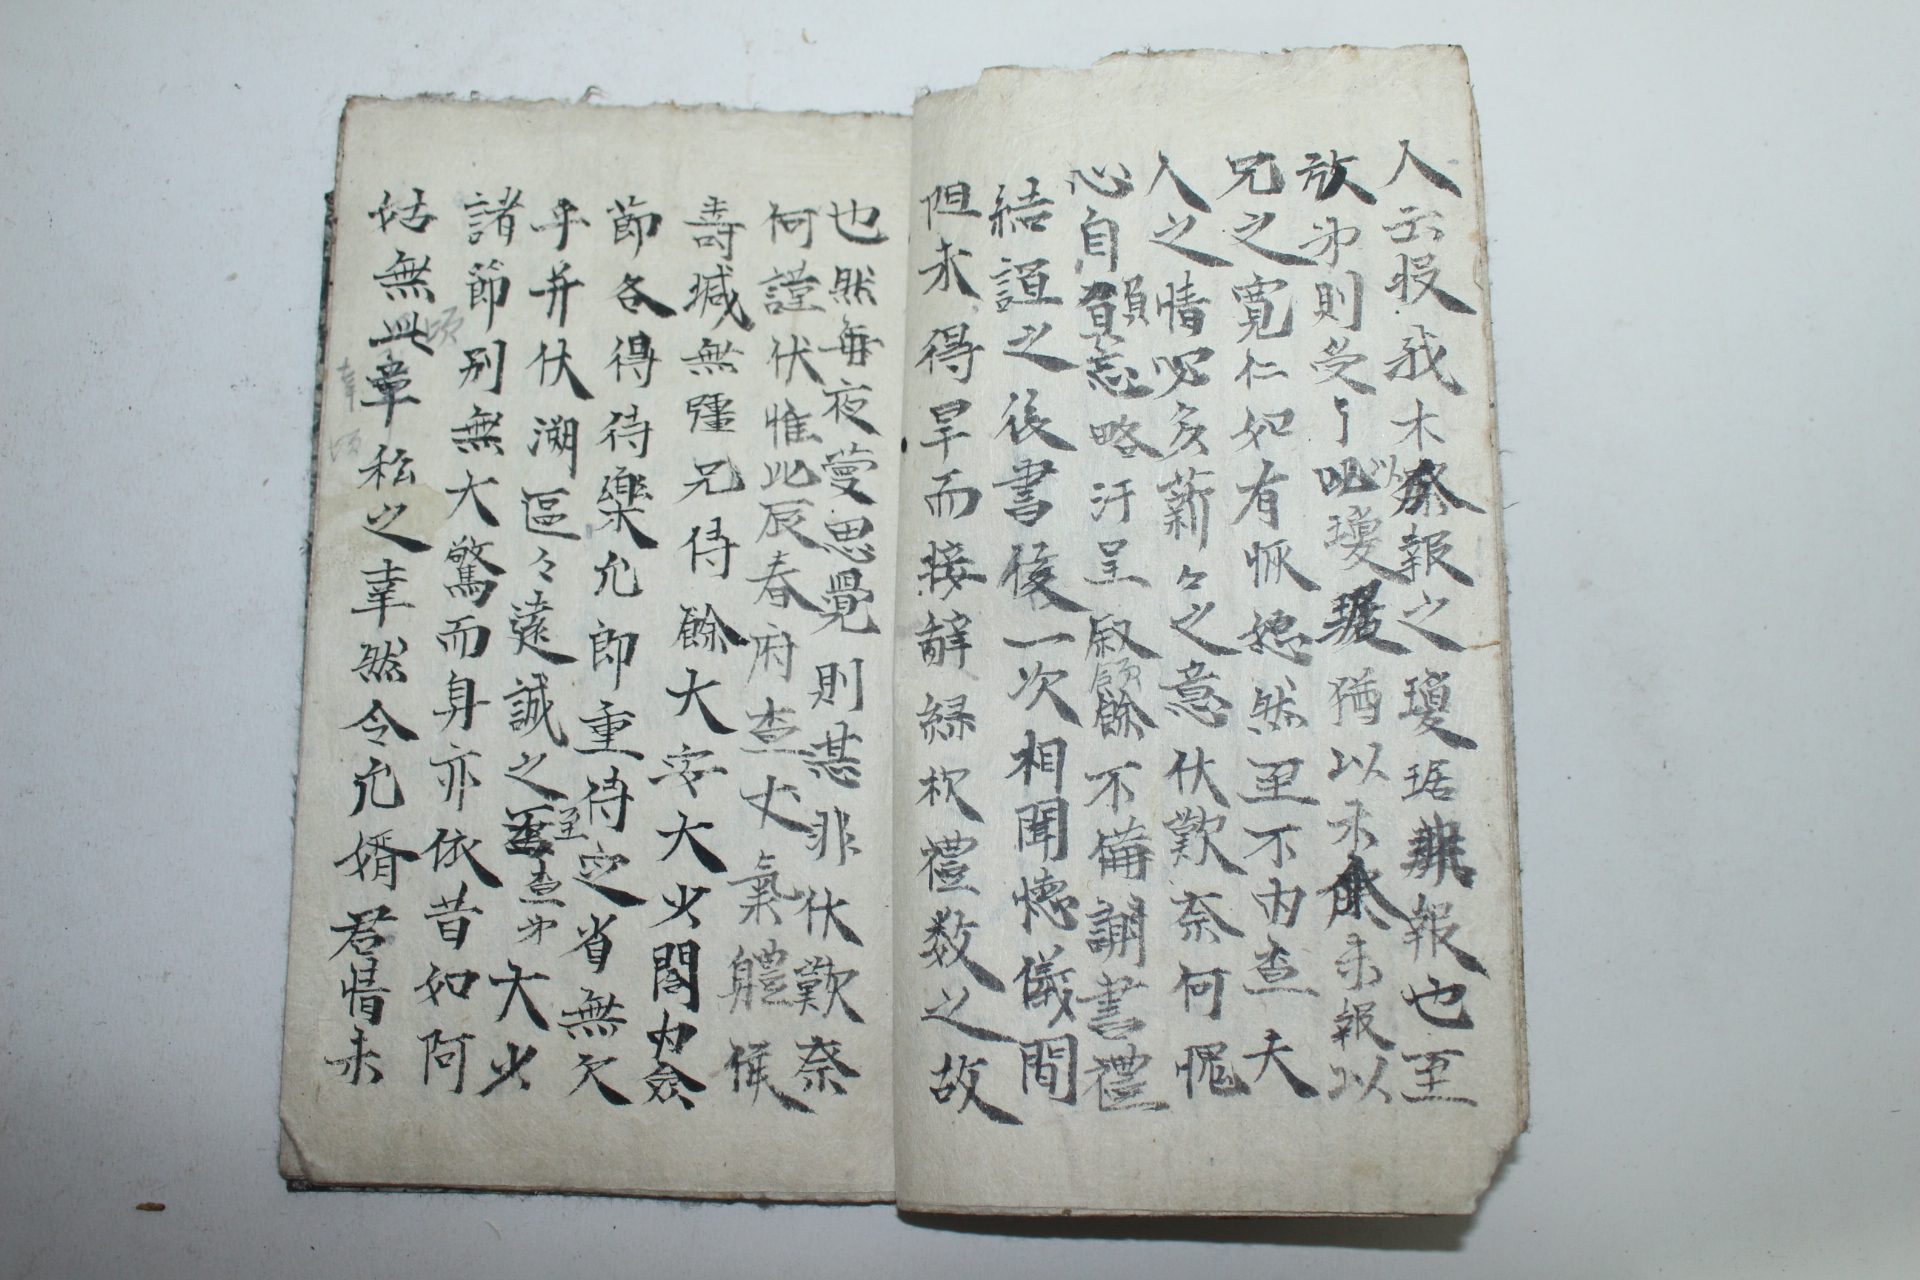 人云投我木報之瓊琚報也至
放弟則受了瓊琚猶以未未報以
兄之寬仁如有恢然至不內查夫
人之情必多薪々之意伏歎奈何愧
心自忘略汗呈餘不備謝書禮
結誼之後書後一次相聞懷儀間
阻未得早而接辭緣於禮數之故
也然每夜夢思覺則甚非伏歎奈
何謹伏惟此辰春府查丈氣體候
壽緘無疆兄侍餘大安大少閤內僉
節各得待樂允郎重侍定省無欠
乎并伏溯區々遠誠之至查弟大少
諸節別無大驚而身亦依昔如阿
姑無此頃章私之幸然令允婿君情未